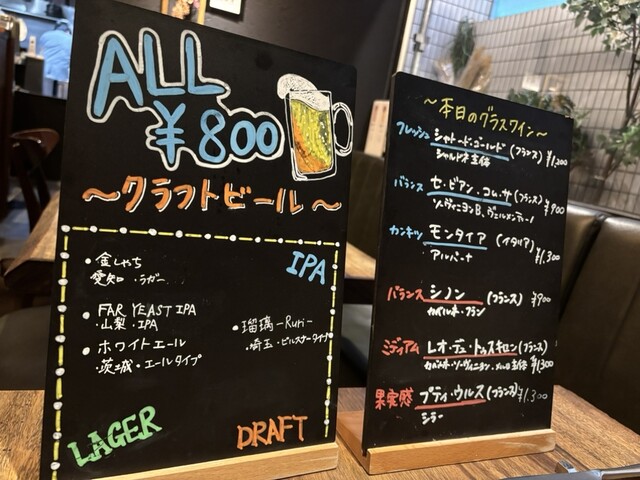 ALL
¥800
～クラフトビール～
IPA
・金しゃち
愛知・ラガー
・FAR YEAST IPA
・山梨・IPA
・ホワイトエール
・茨城・エールタイプ
・瑠璃-Ruri-
・埼玉・ピルスナータイプ
LAGER
DRAFT
～本日のグラスワイン～
フレッシュ シャトー・ド・ (フランス) ¥1,200
シャルドネ主体
バランス セ・ビアン・コム・サ (フランス) ¥900
ソーヴィニヨンB、
カンキツ モンタイア (イタリア) ¥1,300
バランス シノン (フランス) ¥900
カベルネ・フラン
ミディアム レオ・デュ・トゥスキロン (フランス) ¥1,300
カベルネ・ソーヴィニヨン・メルロ主体
果実感 プティ・ウルス (フランス) ¥1,300
シラー